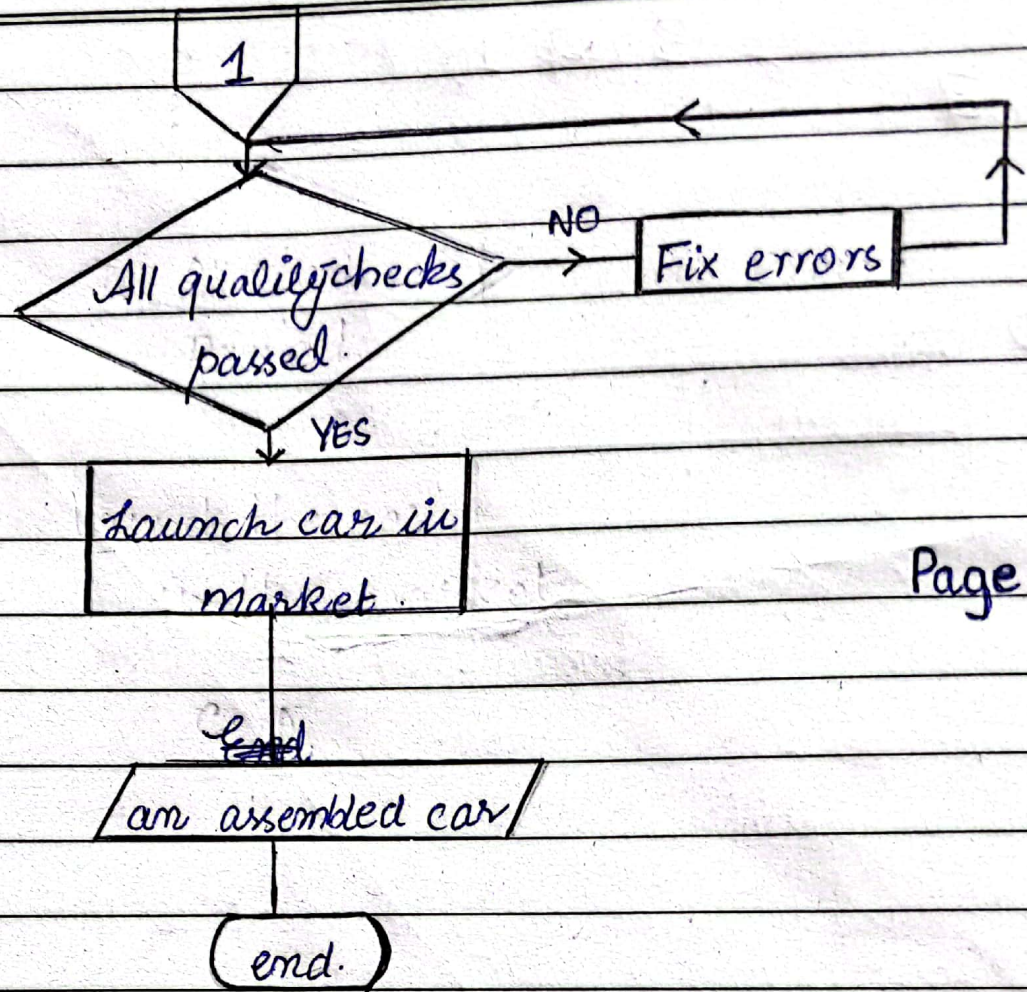 1
NO
All quality checks
passed.
Fix errors
YES
Launch car in
market.
Page
End
an assembled car
end.